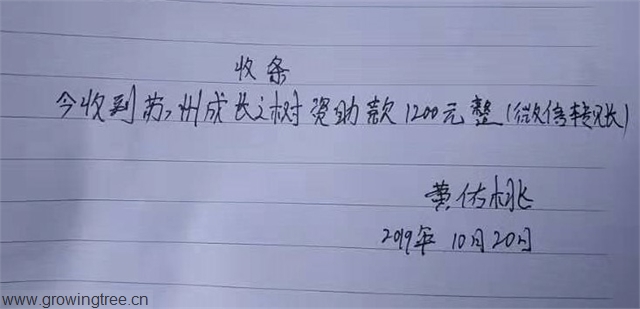 收条
今收到苏州成长之树资助款1200元整(微信转账)
黄佑桃
2019年10月20日
www.growingtree.cn